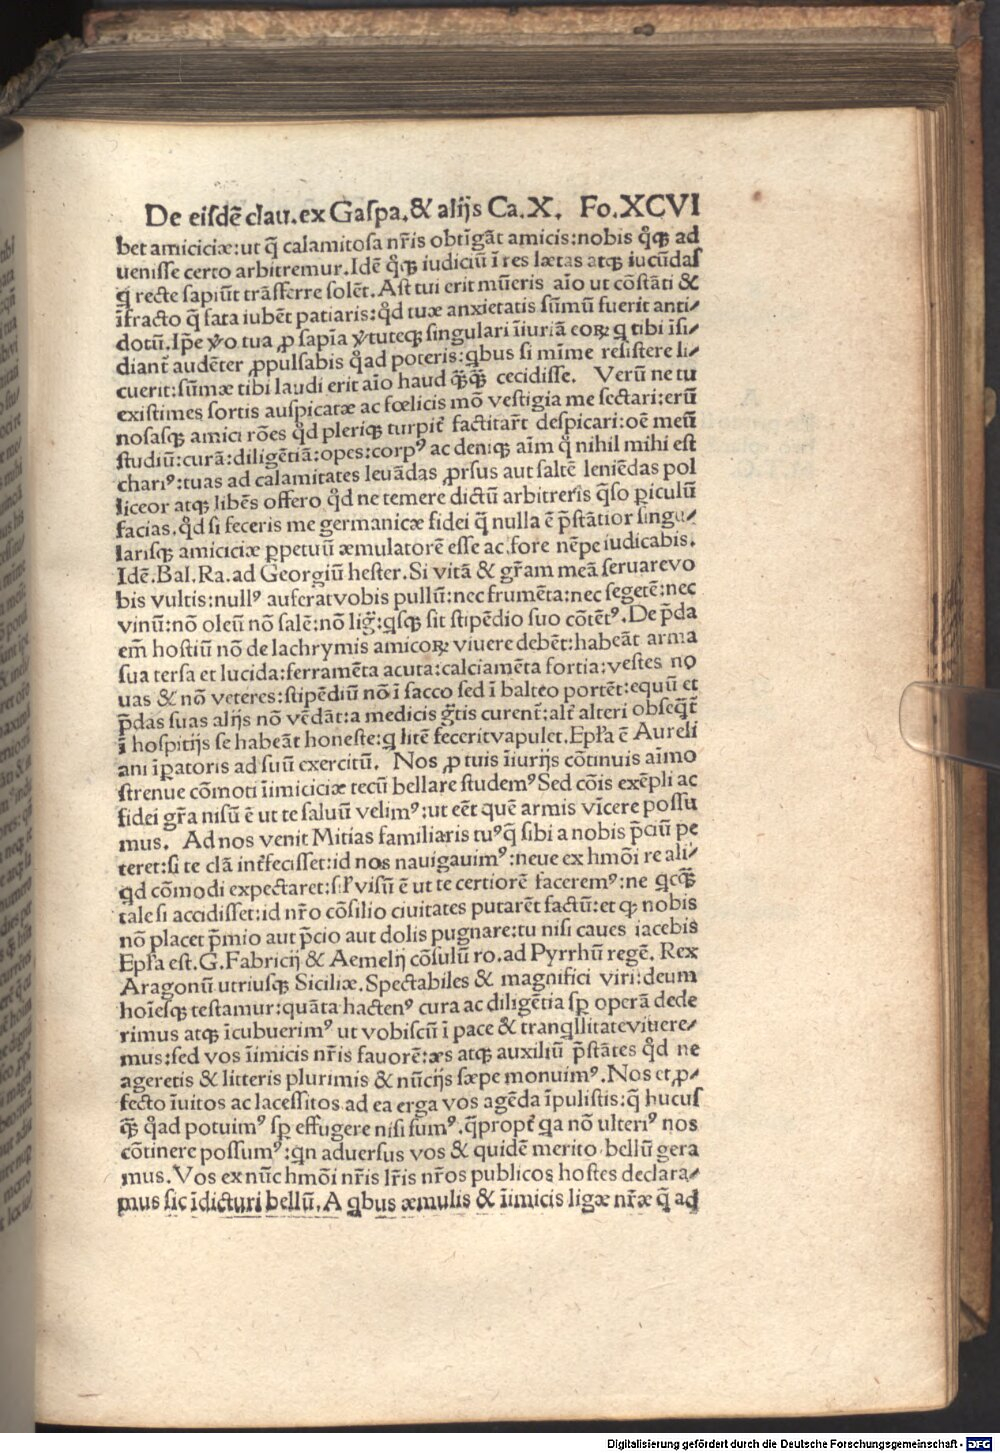 De eiſdē clau. ex Gaſpa. & alijs Ca. X. Fo. XCVI
bet amiciciæ: ut q̄ calamitoſa nr̄is obtigāt amicis: nobis qͦqꝫ ad
ueniſſe certo arbitremur. Idē qͦqꝫ iudiciū ī res lætas atqꝫ iucūdas
q̇ recte ſapiūt trāſferre ſolēt. Aſt tui erit mūeris aīo ut cōſtāti &
īfracto q̄ fata iubēt patiaris: qͦd tuæ anxietatis ſūmū fuerit anti⸗
dotū. Ip̄e ꝟo tua ꝓ ſapīa ꝟtuteqꝫ ſingulari īiuriā coꝝ q tibi īſi⸗
diant̄ audēter ꝓpulſabis qͦad poteris: qbus ſi mīme reſiſtere li⸗
cuerit: ſūmæ tibi laudi erit aīo haud q̄ꝫq̄ꝫ cecidiſſe. Verū ne tu
exiſtimes ſortis auſpicatæ ac fœlicis mō veſtigia me ſectari: erū
noſaſqꝫ amici rōes qͦd pleriqꝫ turpit̄ factitar̄t deſpicari: oē meū
ſtudiū: curā: diligētiā: opes: corpꝰ ac deniqꝫ aīm q̇ nihil mihi eſt
chariꝰ: tuas ad calamitates leuādas ꝓrſus aut ſaltē leniēdas pol
liceor atqꝫ libēs offero qͦd ne temere dictū arbitreris q̄ſo ꝑiculū
facias. qͦd ſi feceris me germanicæ fidei q̄ nulla ē p̄ſtātior ſingu⸗
lariſqꝫ amiciciæ ꝑpetuū æmulatorē eſſe ac. fore nēpe iudicabis.
Idē. Bal. Ra. ad Georgiū heſter. Si vitā & gr̄am meā ſeruarevo
bis vultis: nullꝰ auferatvobis pullū: nec frumēta: nec ſegetē: nec
vinū: nō oleū nō ſalē: nō lig̈: qſqꝫ ſit ſtipēdio ſuo cōtētꝰ. De p̄da
em̄ hoſtiū nō de lachrymis amicoꝝ viuere debēt: habeāt arma
ſua terſa et lucida: ferramēta acuta: calciamēta fortia: veſtes no
uas & nō veteres: ſtipēdiū nō ī ſacco ſed ī balteo portēt: equū et
p̄das ſuas alijs nō vēdāt: a medicis gͣtis curent̄: alt̄ alteri obſeqt̄
ī hoſpitijs ſe habeāt honeſte: q litē feceritvapulet. Epl̄a ē Aureli
ani īp̄atoris ad ſuū exercitū. Nos ꝓ tuis īiurijs cōtinuis aīmo
ſtrenue cōmoti īimiciciæ tecū bellare ſtudemꝰ Sed cōis exēpli ac
fidei gr̄a niſū ē ut te ſaluū velimꝰ: ut eēt quē armis vīcere poſſu
mus. Ad nos venit Mitias familiaris tuꝰ q̄ ſibi a nobis p̄ciū pe
teret: ſi te clā int̄feciſſet: id nos nauigauimꝰ: neue ex hmōi re ali⸗
qd cōmodi expectaret: ſil̄ viſū ē ut te certiorē faceremꝰ: ne qcq̄ꝫ
tale ſi accidiſſet: id nr̄o cōſilio ciuitates putarēt factū: et qꝫ nobis
nō placet p̄mio aut p̄cio aut dolis pugnare: tu niſi caues iacebis
Epl̄a eſt. G. Fabricij & Aemelij cōſulū ro. ad Pyrrhū regē. Rex
Aragonū utriuſqꝫ Siciliæ. Spectabiles & magnifici viri: deum
hoīeſqꝫ teſtamur: quāta hactenꝰ cura ac diligētia ſꝑ operā dede
rimus atqꝫ īcubuerimꝰ ut vobiſcū ī pace & tranqllitatevivere⸗
mus: ſed vos īimicis nr̄is fauorē: æs atqꝫ auxiliū p̄ſtātes qͦd ne
ageretis & litteris plurimis & nūcijs ſæpe monuimꝰ. Nos et ꝓ⸗
fecto īuitos ac laceſſitos ad ea erga vos agēda īpuliſtis: q̄ hucuſ
q̄ꝫ qͦad potuimꝰ ſꝑ effugere niſi ſumꝰ. q̄propt̄ qa nō ulteriꝰ nos
cōtinere poſſumꝰ: qn aduerſus vos & quidē merito bellū gera
mus. Vos ex nūc hmōi nr̄is lr̄is nr̄os publicos hoſtes declara⸗
mus ſic īdicturi bellū. A qbus æmulis & īimicis ligæ nr̄æ q̄ ad
Digitalisierung gefördert durch die Deutsche Forschungsgemeinschaft - DFG